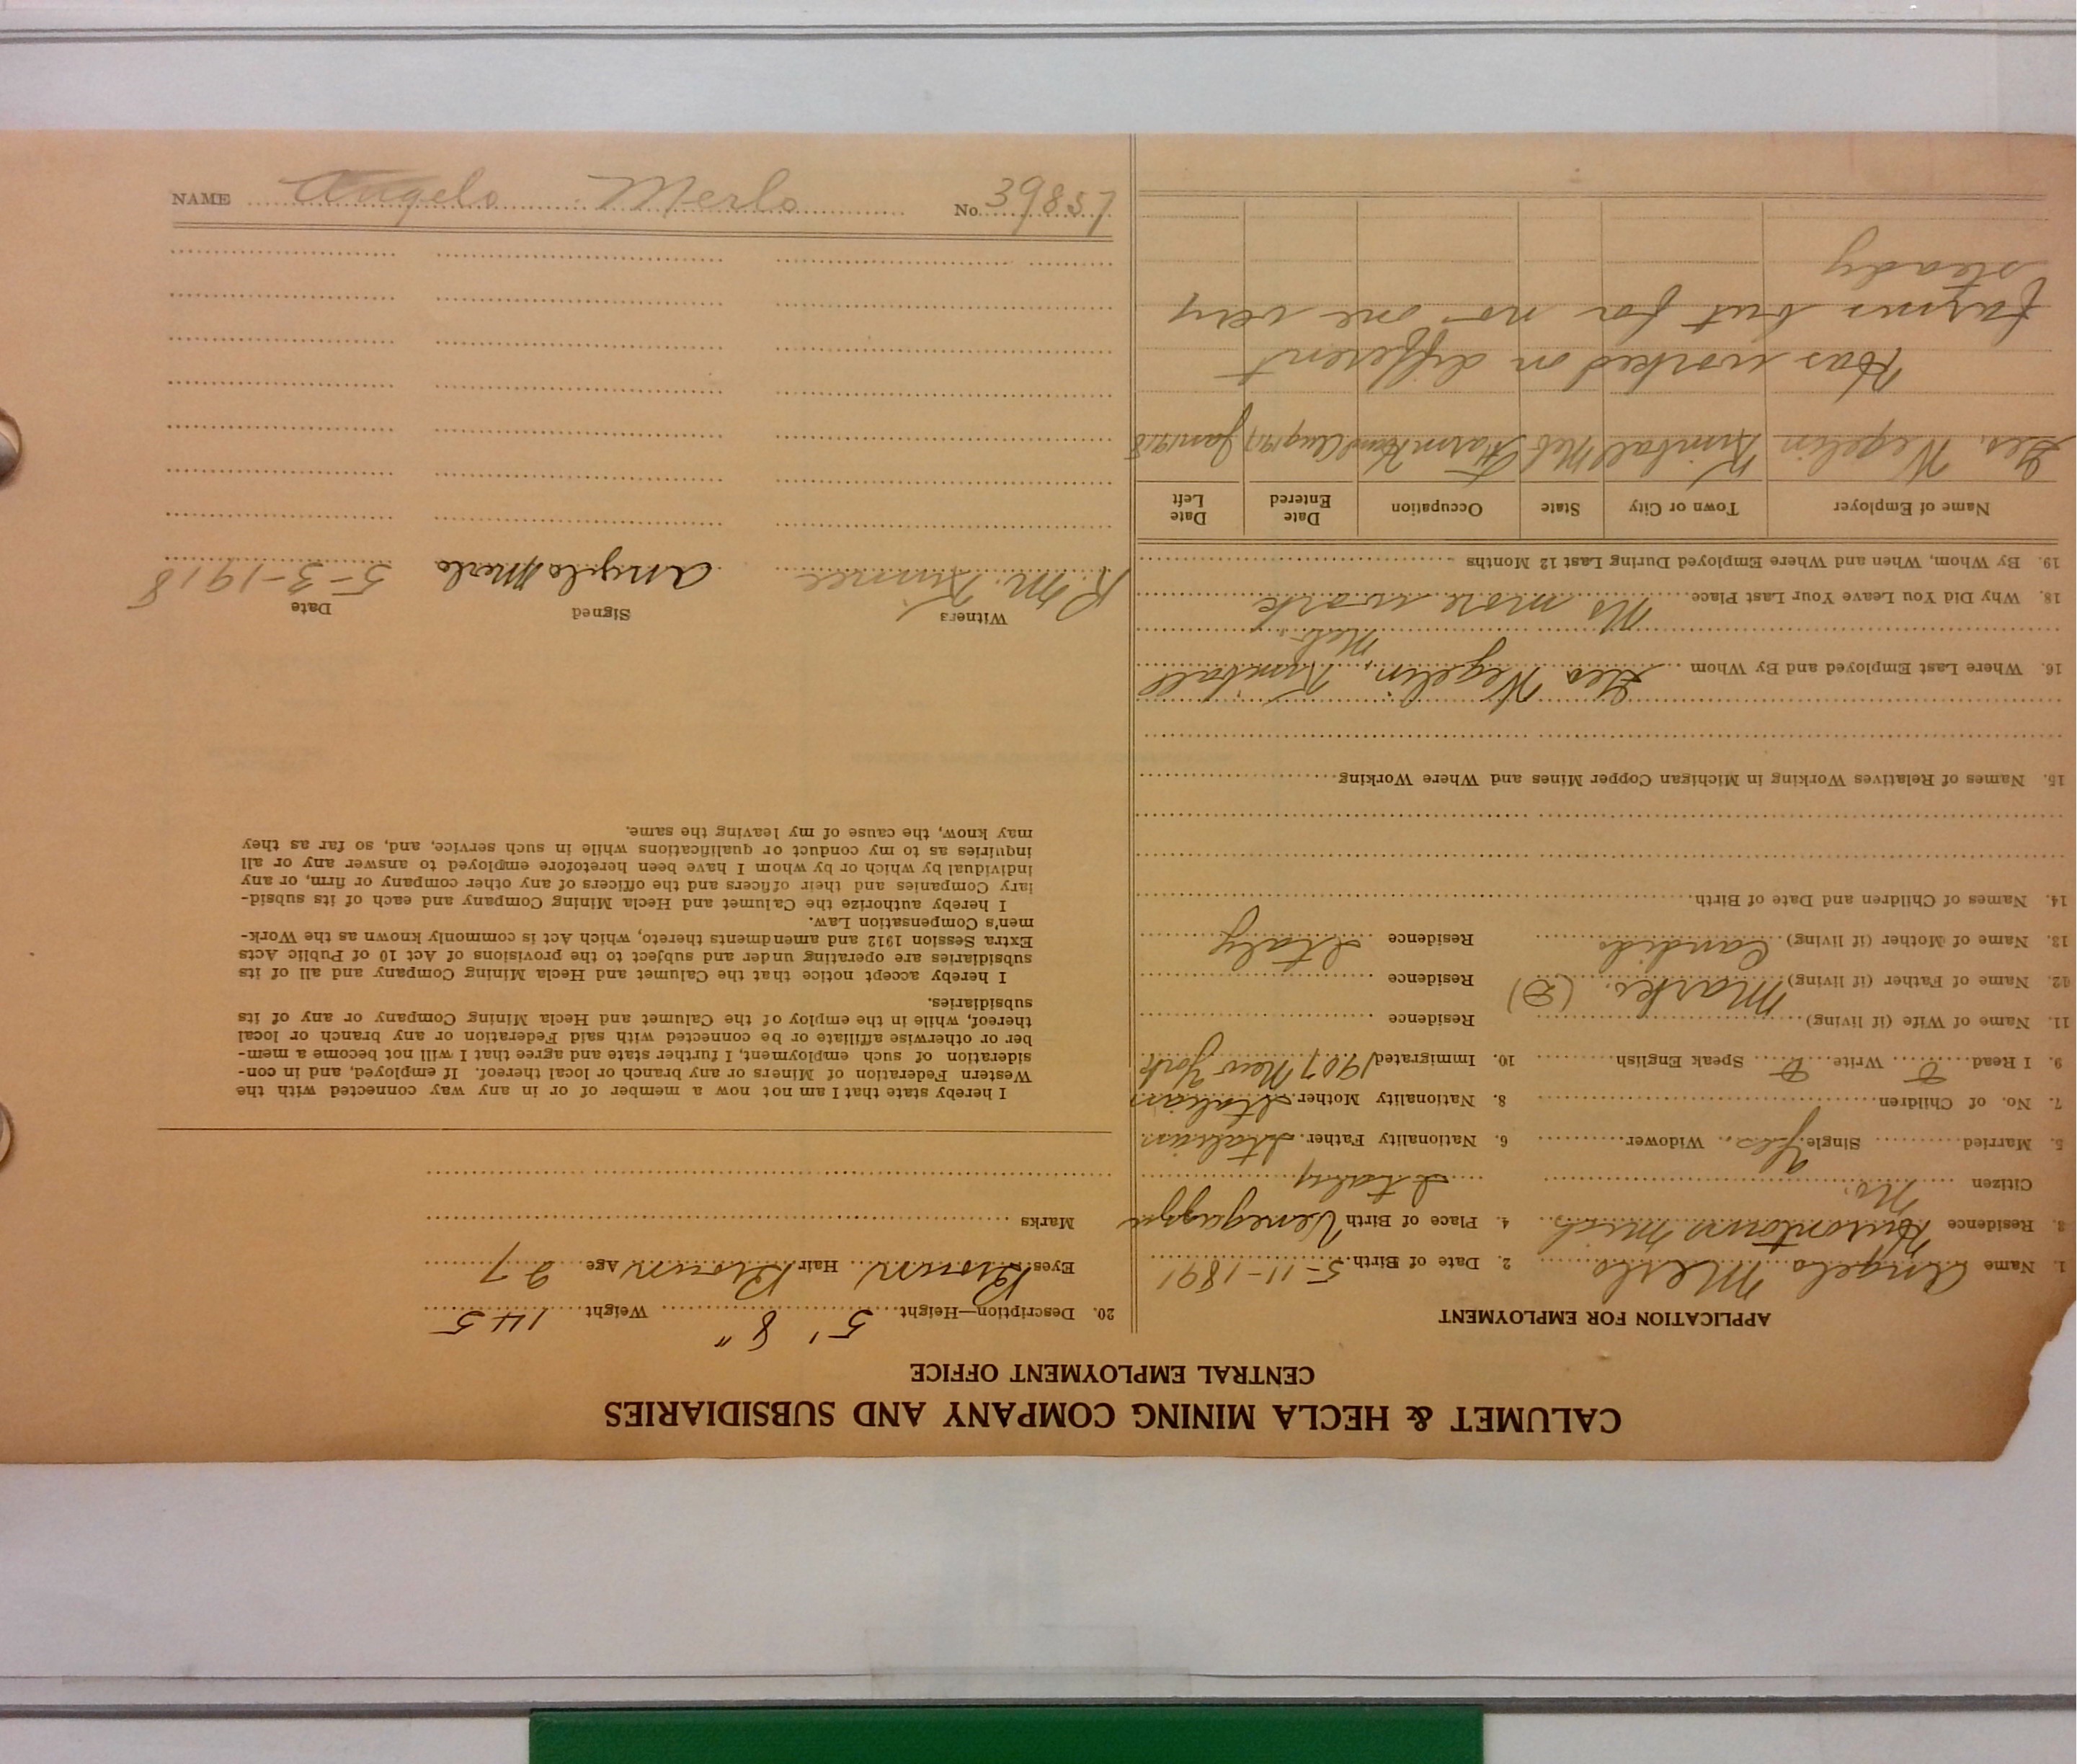 CALUMET & HECLA MINING COMPANY AND SUBSIDIARIES
CENTRAL EMPLOYMENT OFFICE
APPLICATION FOR EMPLOYMENT
1. Name Angelo Merlo 2. Date of Birth 5-11-1891
3. Residence Hurontown Mich 4. Place of Birth Venegazzu
Citizen No. Italy
5. Married Single Yes Widower 6. Nationality Father Italian
7. No. of Children 8. Nationality Mother Italian
9. I Read Write Speak English 10. Immigrated 1907 New York
11. Name of Wife (if living) Residence
12. Name of Father (if living) Marko. (D) Residence
13. Name of Mother (if living) Candido Residence Italy
14. Names of Children and Date of Birth
15. Names of Relatives Working in Michigan Copper Mines and Where Working
16. Where Last Employed and By Whom Geo Wegelin, Kimball
Neb.
18. Why Did You Leave Your Last Place No more work
19. By Whom, When and Where Employed During Last 12 Months
Name of Employer Town or City State Occupation Date Entered Date Left
Geo. Wegelin Kimball Neb Farm Hand Aug 1917 Jan 1918
Has worked on different
farms but for no one very
steady
20. Description—Height 5' 8" Weight 145
Eyes Brown Hair Brown Age 27
Marks
I hereby state that I am not now a member of or in any way connected with the
Western Federation of Miners or any branch or local thereof. If employed, and in con-
sideration of such employment, I further state and agree that I will not become a mem-
ber or otherwise affiliate or be connected with said Federation or any branch or local
thereof, while in the employ of the Calumet and Hecla Mining Company or any of its
subsidiaries.
I hereby accept notice that the Calumet and Hecla Mining Company and all of its
subsidiaries are operating under and subject to the provisions of Act 10 of Public Acts
Extra Session 1912 and amendments thereto, which Act is commonly known as the Work-
men's Compensation Law.
I hereby authorize the Calumet and Hecla Mining Company and each of its subsid-
iary Companies and their officers and the officers of any other company or firm, or any
individual by which or by whom I have been heretofore employed to answer any or all
inquiries as to my conduct or qualifications while in such service, and, so far as they
may know, the cause of my leaving the same.
Witness Signed Date
R. M. Angelo Merlo 5-3-1918
NAME Angelo Merlo No. 39857